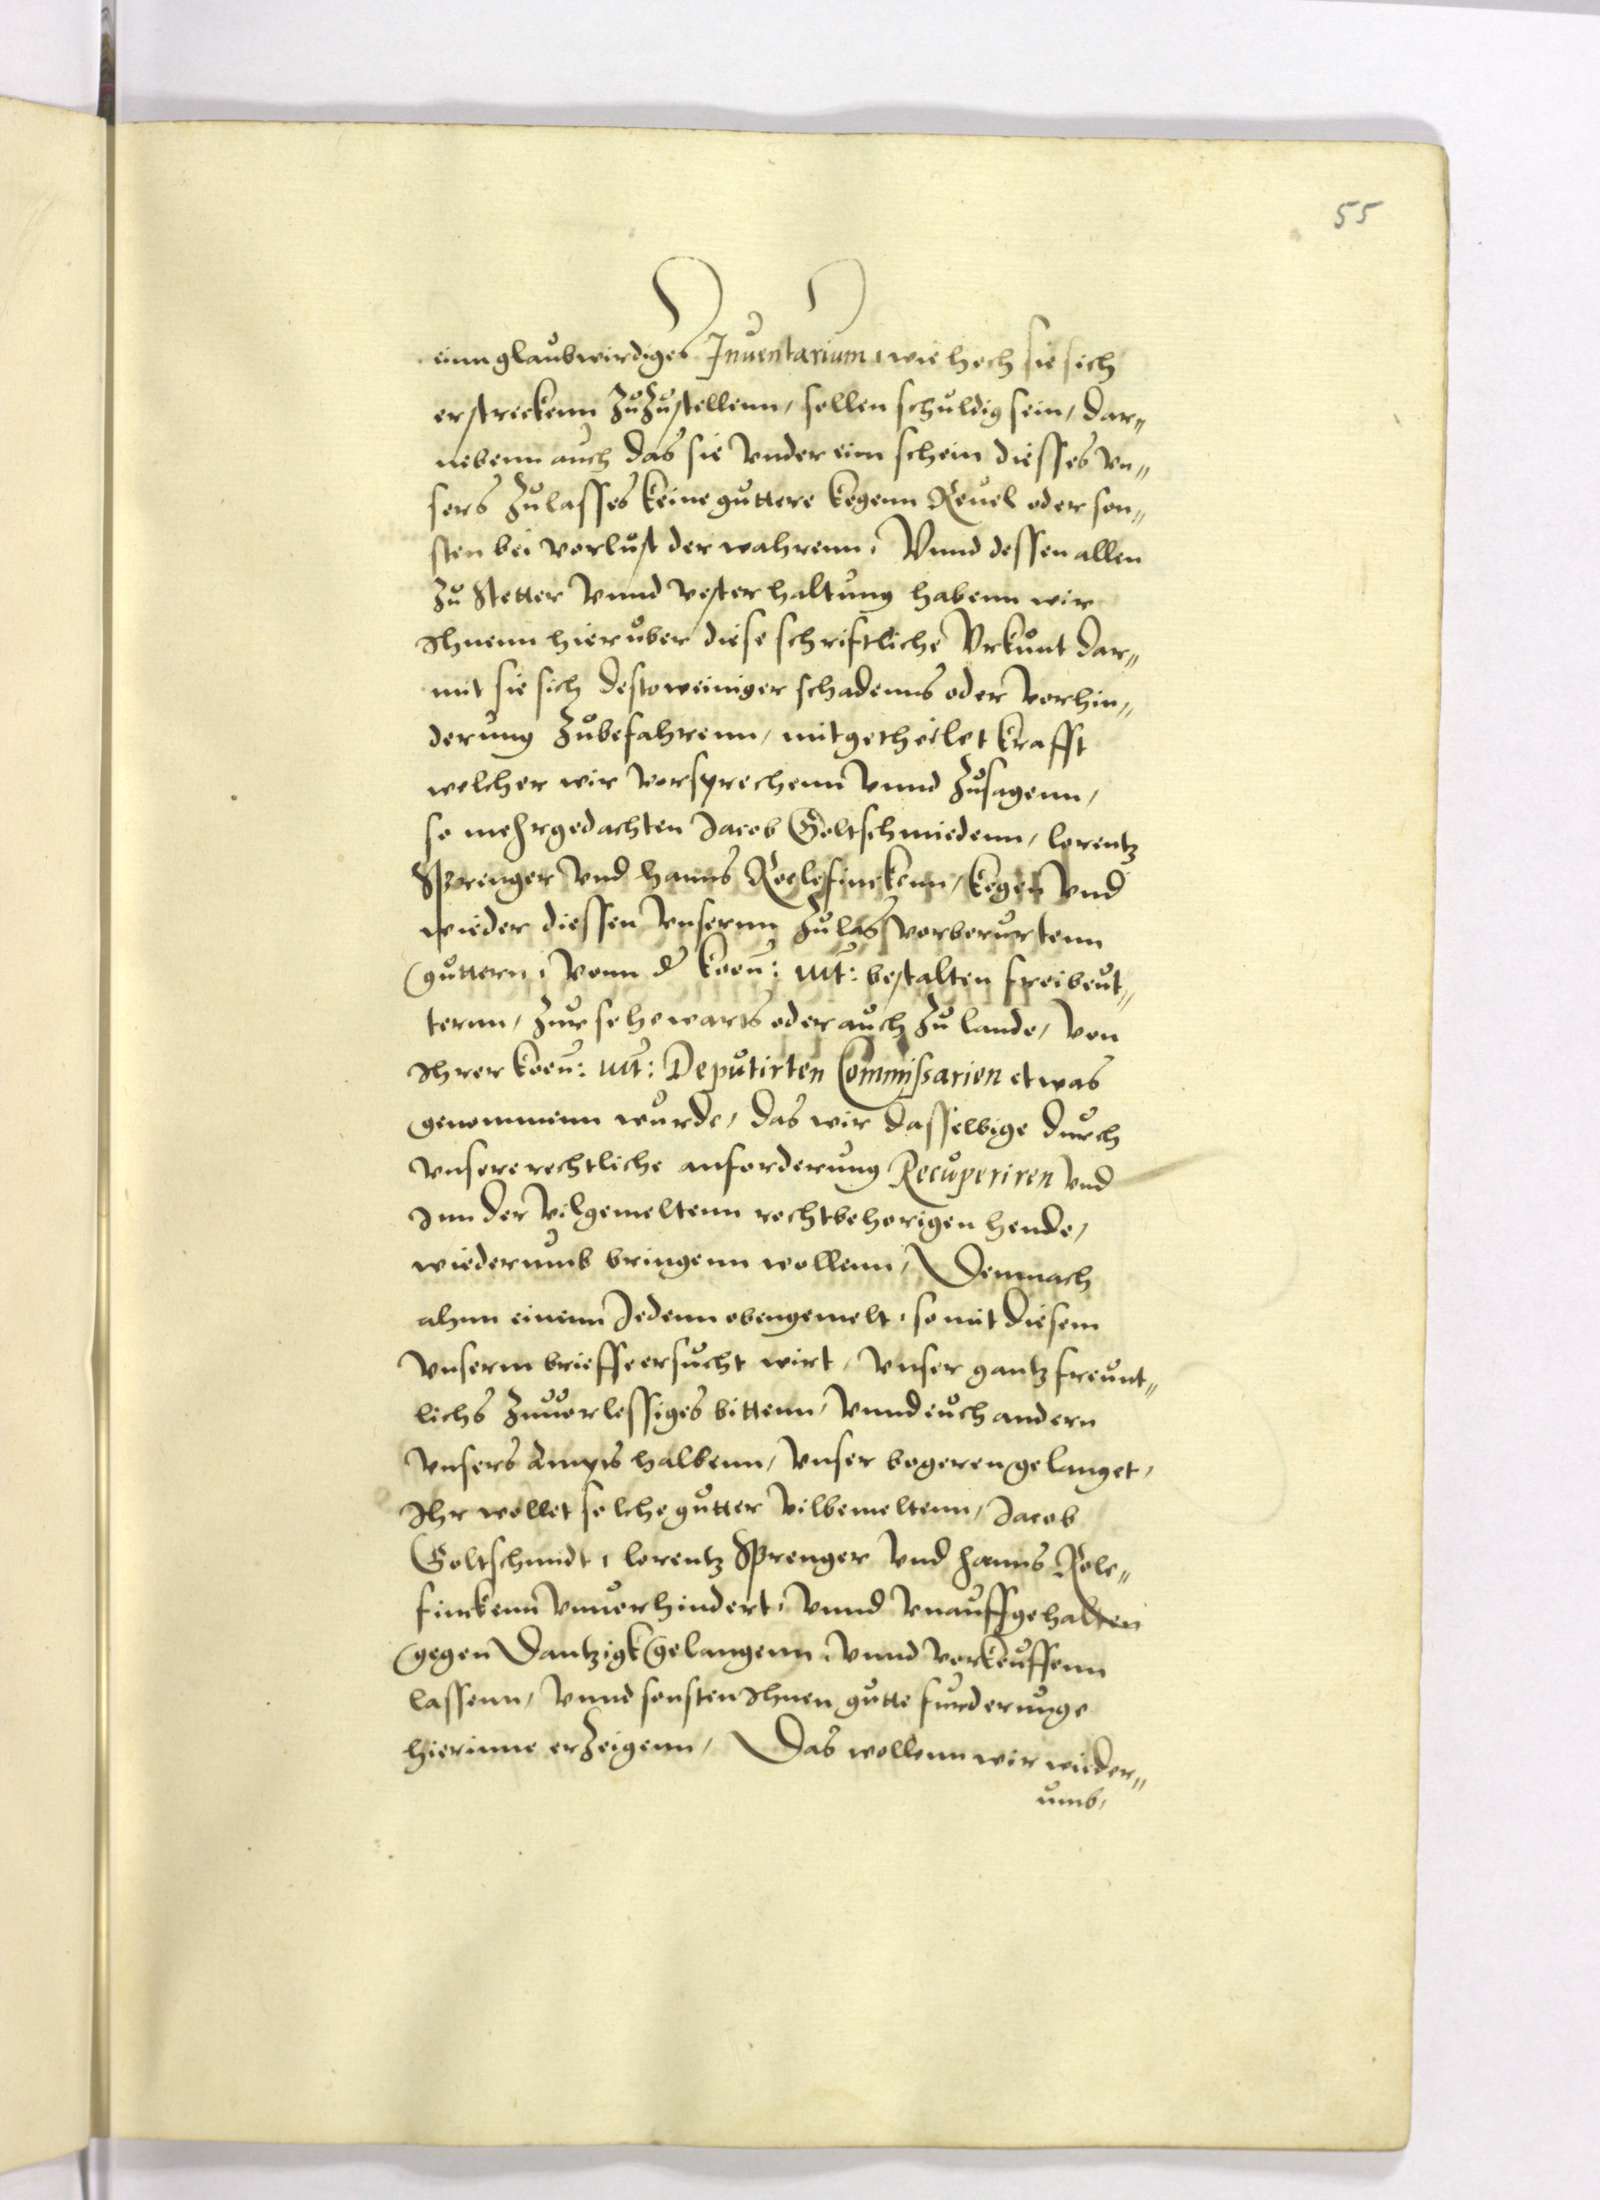 55
einn glaubwirdiges Inuentarium, wie hoch sie sich
erstreckenn zuzustellenn, sollen schuldig sein, dar„
nebenn auch das sie vnder eim schein diesses vn„
sers zulasses keine guttere kegenn Reuel oder son„
sten bei vorlust der wahrenn, Vnnd dessen allen
zu stetter vnnd vester haltung habenn wir
Ihnenn hieruber diese schriftliche Vrkunt dar„
mit sie sich desto weiniger schadenns oder vorhin„
derung zubefahrenn, mitgetheilet krafft
welcher wir vorsprechenn vnnd zusagenn,
so mehrgedachten Jacob Goltschmiedenn, lorentz
Sprenger vnd hanns Roelefinckenn, kegen vnd
wieder diessen vnsernn zulas vorberurtenn
guttern, vonn d koen: Mt: bestalten freibeut„
ternn, zur sehewarts oder auch zu lande, von
Ihrer koen: Mt: Deputirten Commissarien etwas
genommenn wurde, das wir dasselbige durch
vnsere rechtliche anforderung Recuperiren vnd
Inn der vilgemeltenn rechtbehorigen hende,
wiederumb bringenn wollenn, Demnach
ahnn einenn Jedenn obengemelt, so mit diesem
vnserm brieffe ersucht wirt, vnser gantz freunt„
lichs zuuorlessiges bittenn, vnnd euch andern
vnsers Ampts halbenn, vnser begeren gelanget,
Ihr wollet solche gutter vilbemeltenn, Jacob
Goltschmidt, lorentz Sprenger vnd hanns Role„
finckenn vnuorhindert, vnnd vnauffgehalten
gegen Dantzigk gelangenn, vnnd vorkeuffenn
lassenn, vnnd sonsten Ihnen gutte furderunge
hierinne erzeigenn, Das wollenn wir wieder„
umb,